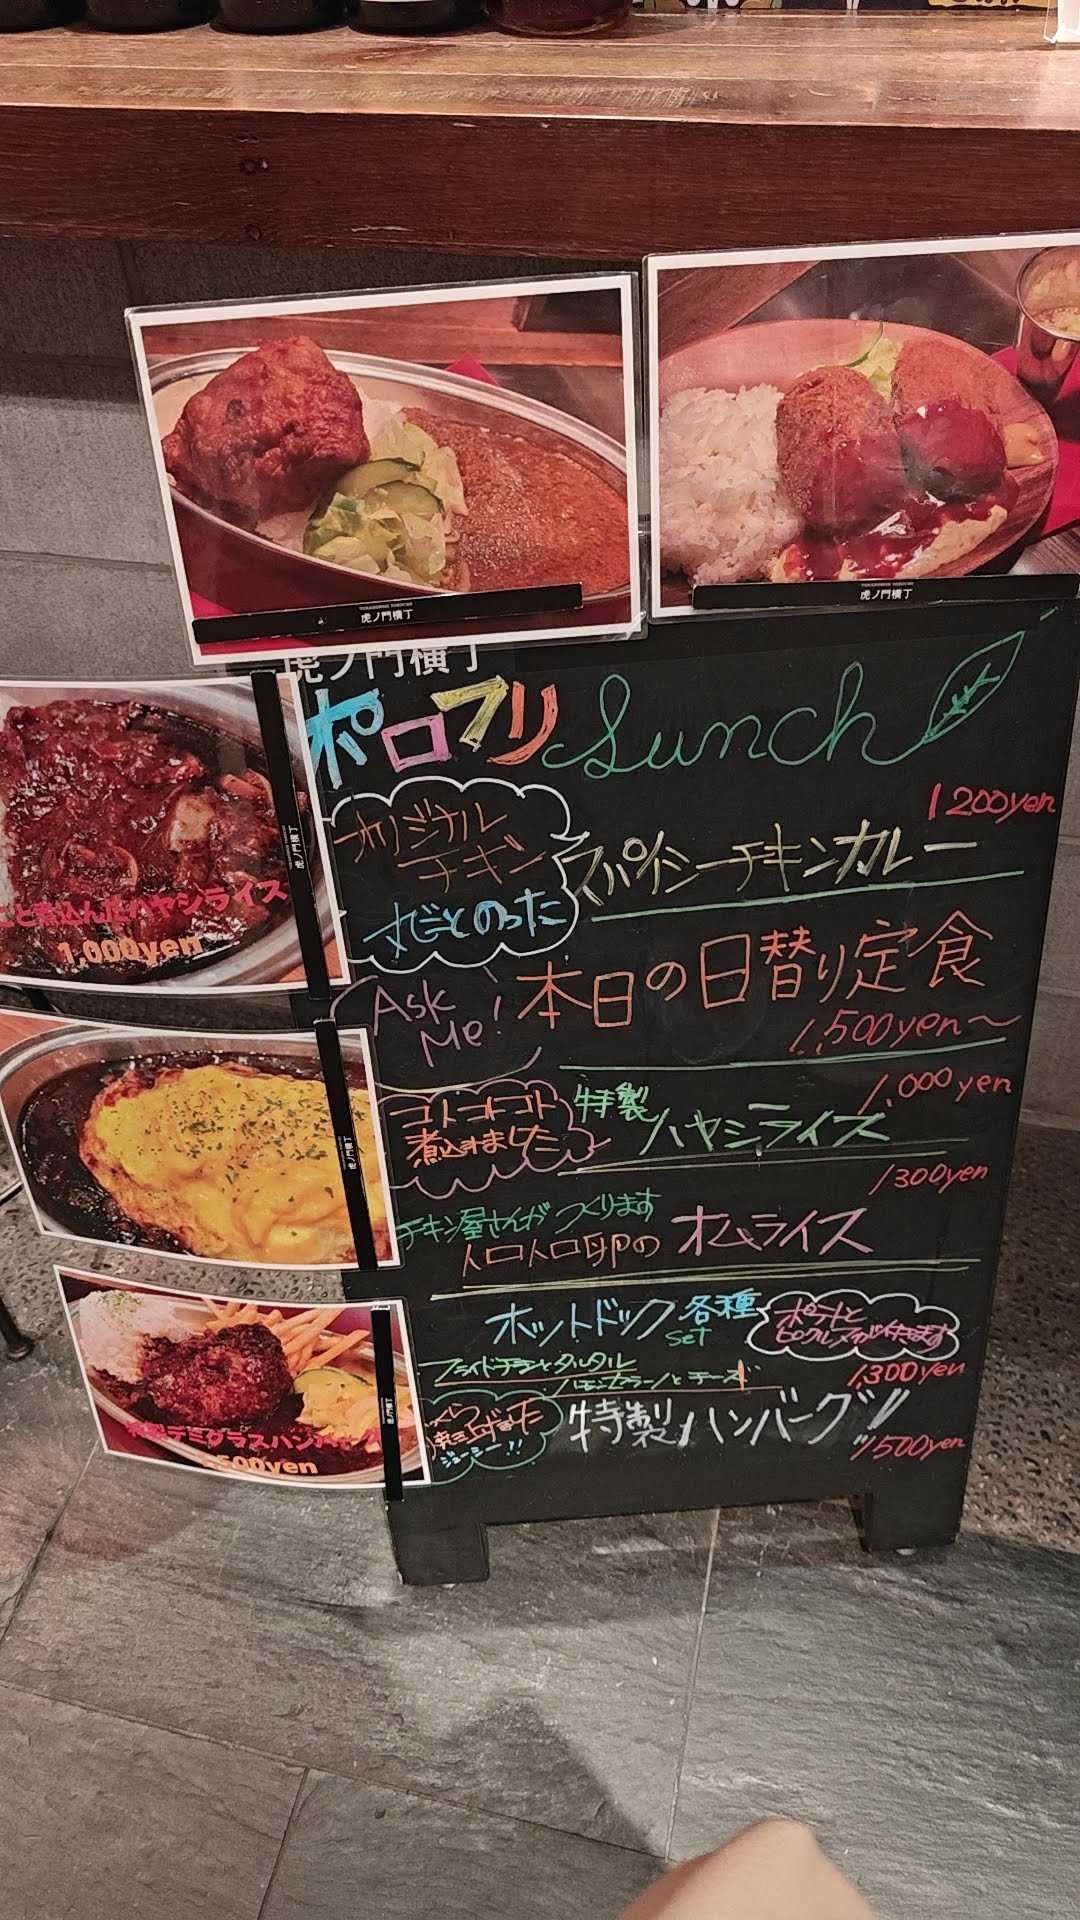 TORANOMON YOKOCHO
虎ノ門横丁
虎ノ門横丁
虎ノ門横丁
ポロフリ Lunch
1200yen
オリジナル
チキン
丸ごとのった
スパイシーチキンカレー
Ask
Me!
本日の日替り定食
1,500yen〜
コトコトコト
煮込みました
特製
ハヤシライス
1,000yen
1300yen
チキン屋さんが つくります
トロトロ卵の オムライス
ホットドック 各種
set
ポテトと
ピクルスが付きます
フライドチキンとタルタル
ハモンセラーノとチーズ
1300yen
焼き上げました
ジューシー!!
特製ハンバーグ
1500yen
と煮込んだハヤシライス
1,000yen
虎ノ門横丁
虎ノ門横丁
特製デミグラスハンバ
500yen
虎ノ門横丁